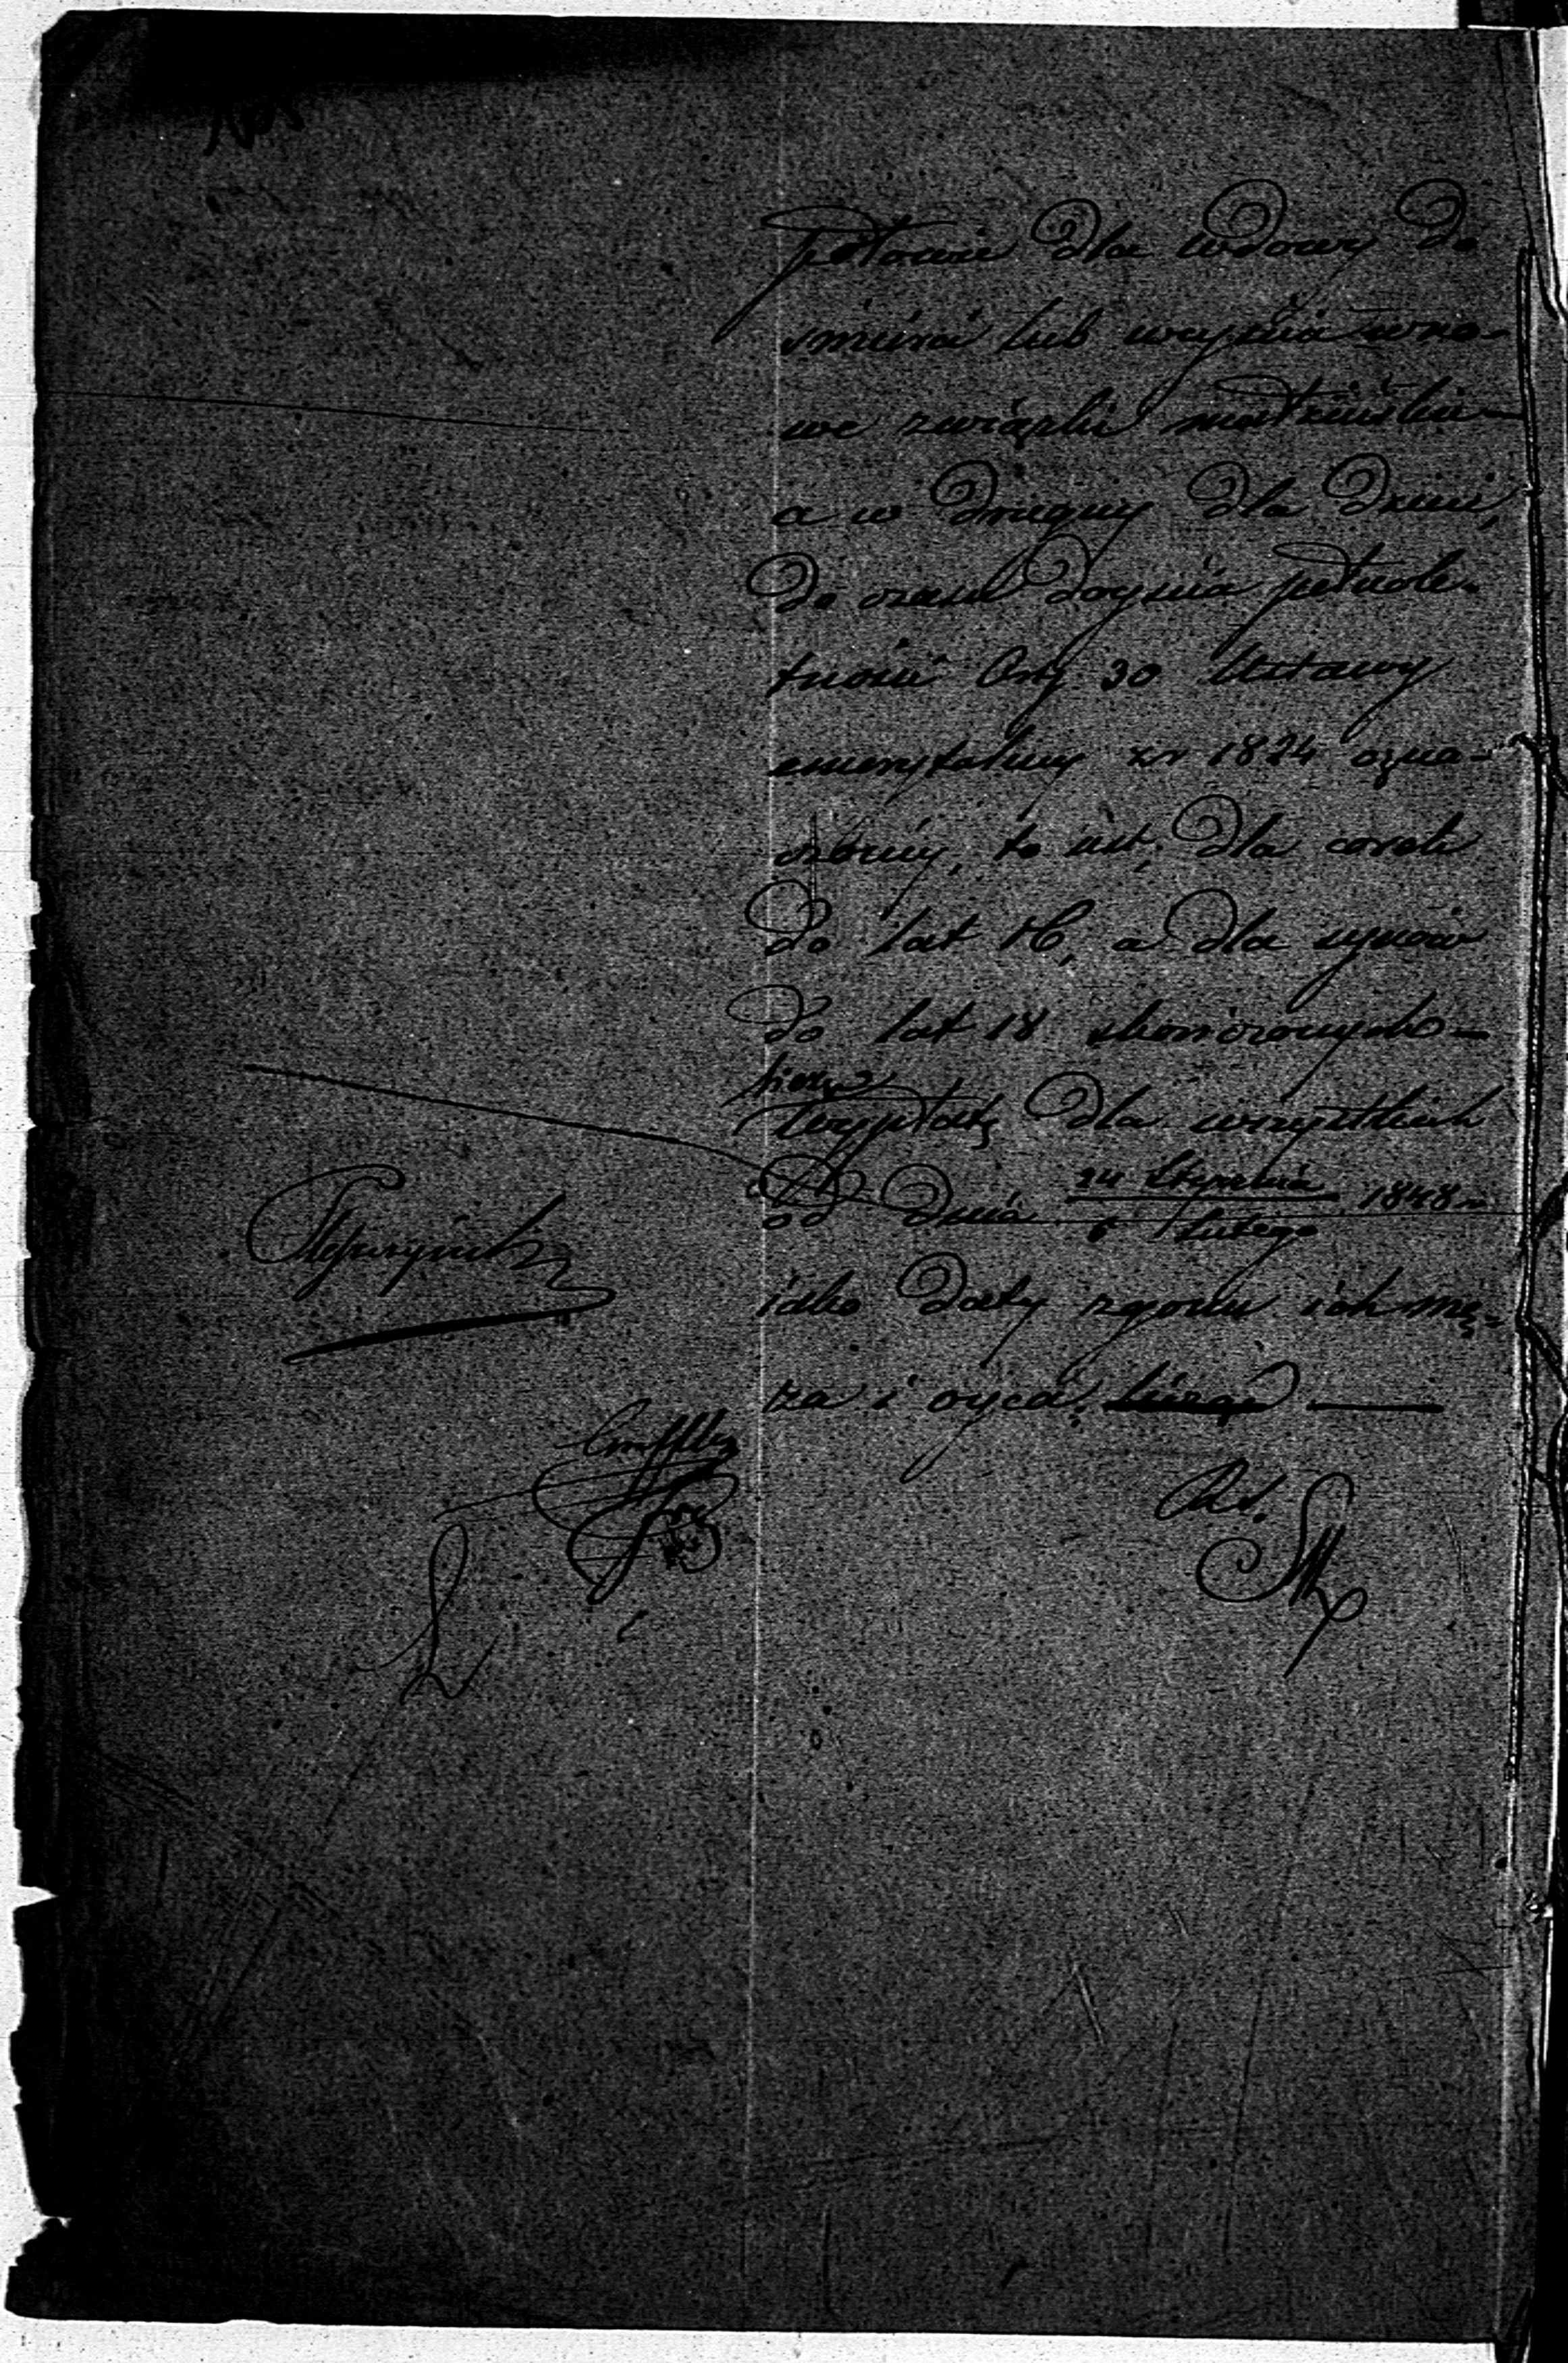 połowie dla wdowy do
śmierci lub weyścia w no-
we związki małżeńskie
a w drugiéy dla dzieci,
do czasu doyścia pełnole-
tności Art 30 Ustawy
emerytalnéy z r 1824 ozna-
czonéy, to iest, dla corek
do lat 16, a dla synów
do lat 18 skończonych
licząc
wypłatę dla wszystkich
od dnia 24 Stycznia / 5 Lutego 1848 r
iako daty zgonu ich mę-
ża i oyca. licząc